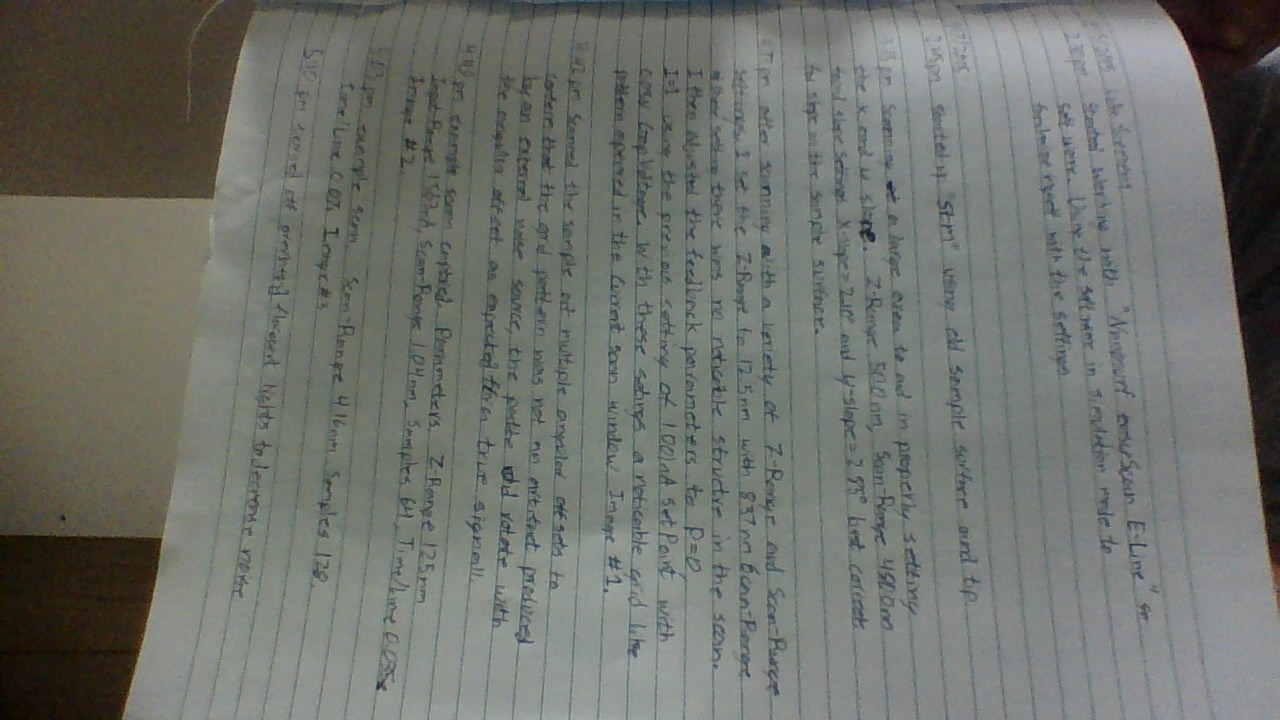 2:30pm Started working with "Nanosurf easyScan E-Line"
software. Using the software in simulation mode to
myself with the settings
2:45pm started up "STM" using old sample surface and tip.
pm Scanning a large area to aid in properly setting
the x and y slope. Z-Range 500nm, Scan-Range 4500nm
found slope settings X-slope= 2.10° and y-slope= 2.55° best corrects
for slope in the sample surface.
pm after scanning with a veriety of Z-Range and Scan-Range
settings, I set the Z-Range to 12.5nm with 837nm Scan-Range
these setting there was no noticable structure in the scan.
I then adjusted the feedback parameters to P=0,
I=1 using the previous setting of 1.001nA SetPoint with
Voltage. With these setings a noticeable grid like
pattern apeared in the current scan window Image #1.
4:42 pm scanned the sample at multiple angular offsets to
confirm that the grid pattern was not an artifact produced
by an external noise source, the did rotate with
the angular offset as expected for a true signall.
pm example scan captured. Parameters. Z-Range 125nm
Input-Range 1.563nA, Scan-Range 1.04nm, Samples 64, Time/Line 0.035s
Image #2.
5:03 pm example scan. Scan-Range 4.16nm Samples 128,
Time/Line Image #3
5:10 pm turned off overhead florecent lights to decrease noise